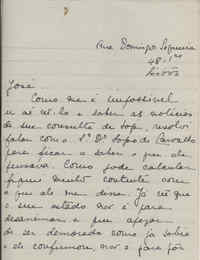 Rua Domingos Sequeira
48-1º
Lisboa
José
Como me é impossivel
ir até
e saber as noticias
da sua consulta de hoje, resolvi
falar com o Dr. Lopo de Carvalho
para ficar a saber o que ele
pensava. Como pode calcular
fiquei muito contente com
o que ele me disse. Já vê que
o seu estado não é para
desanimar e que apezar
de ser demorada como já sabia
e ele confirmou, não é para